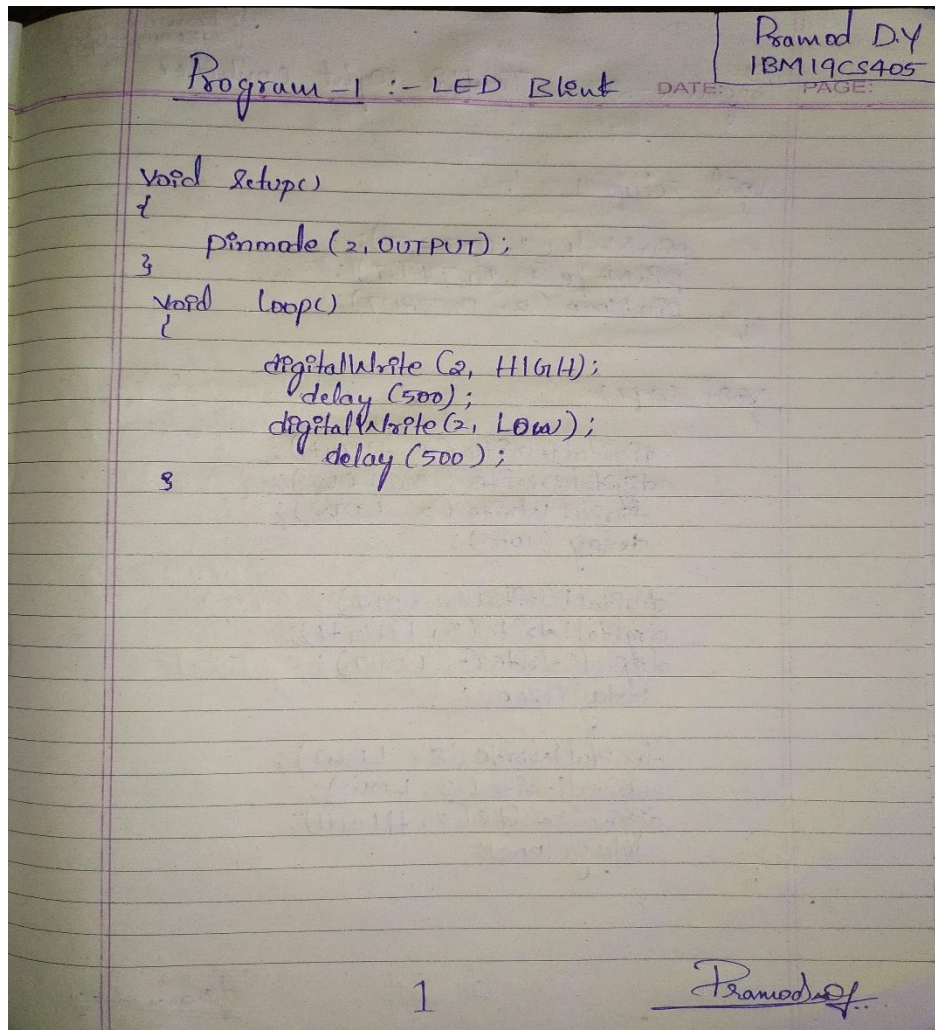 Pramod D.Y
1BM19CS405
Program-1 :- LED Blink
DATE: PAGE:
void setup()
{
pinmode (2, OUTPUT);
}
void loop()
{
digitalWrite (2, HIGH);
delay (500);
digitalWrite (2, LOW);
delay (500);
}
1